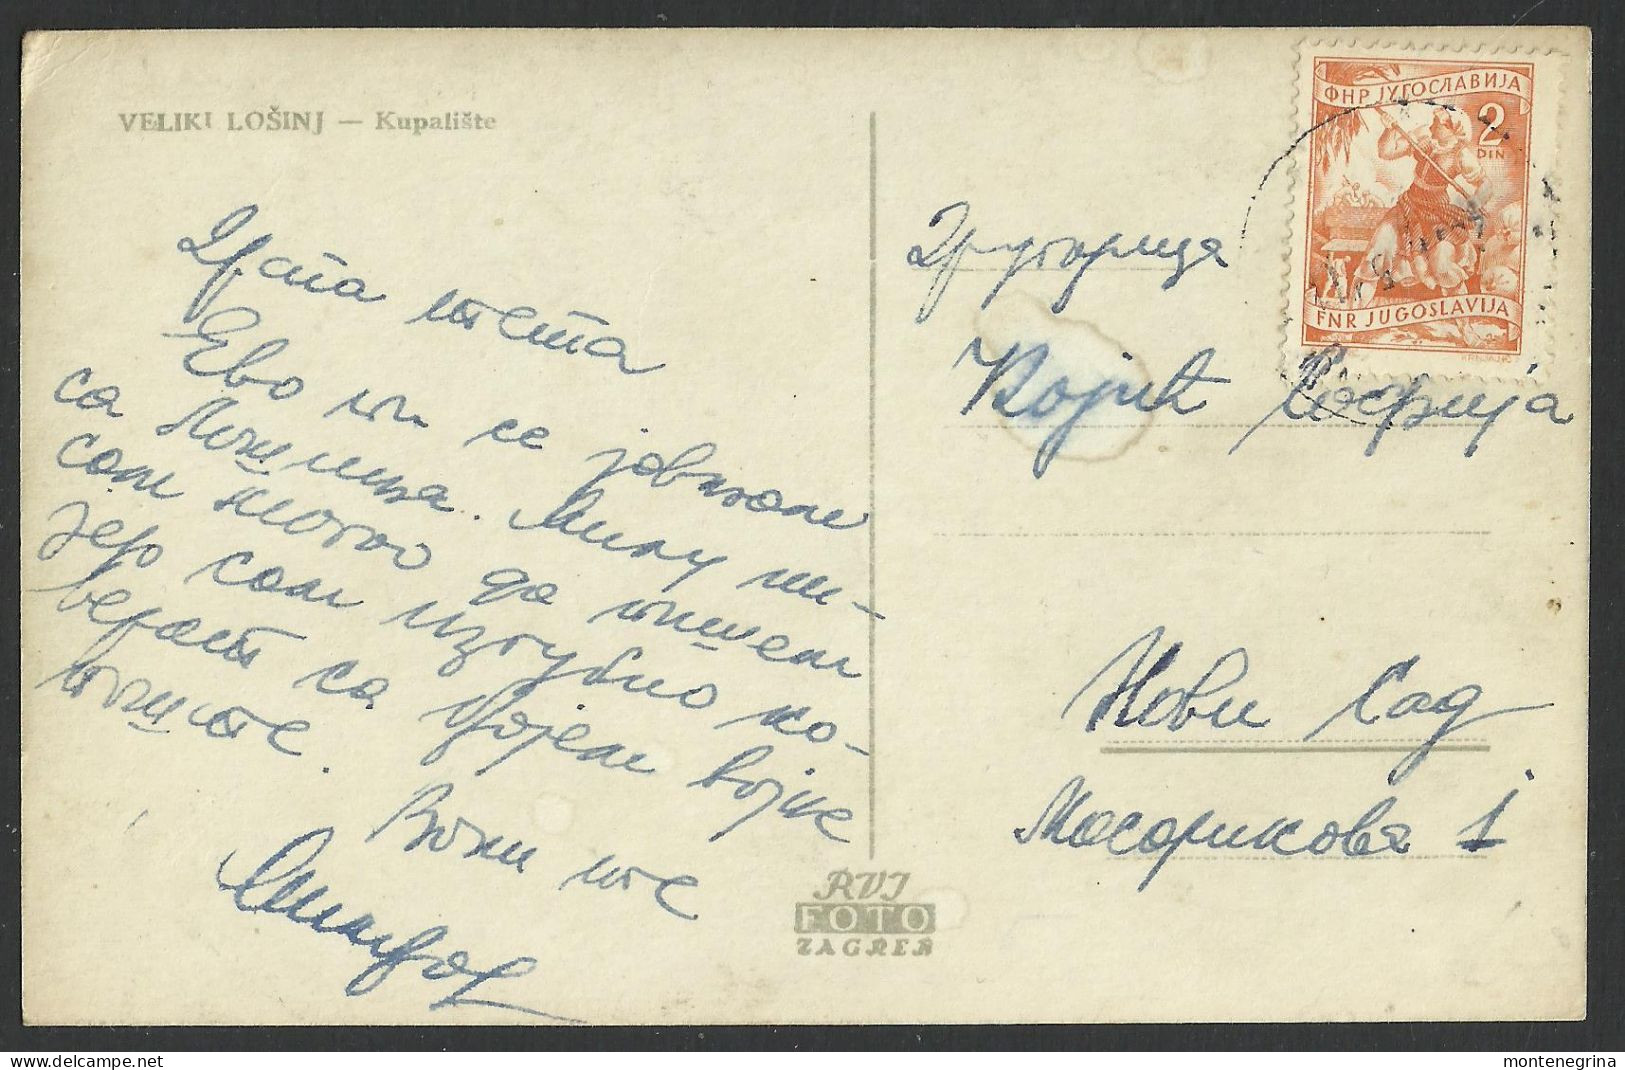 VELIKI LOŠINJ — Kupalište
Драга тета
Ево ти се јављам
са Лошиња. Мику ни-
сам могао да пишем
јер сам изгубио ко-
верат са војне
пишите.
Воли те
ФНР ЈУГОСЛАВИЈА
2
DIN
FNR JUGOSLAVIJA
Другарица
Којић Софија
Нови Сад
Масарикова 1
RVI
FOTO
ZAGREB
montenegrina